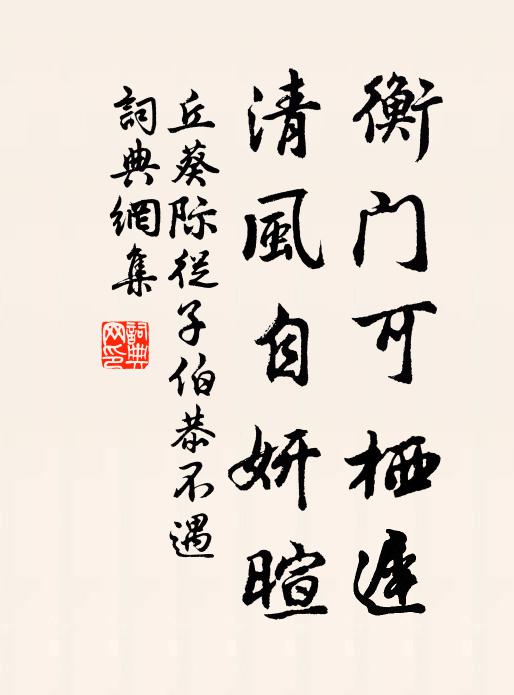 衡門可栖遲
清風自妍暄
丘葵际從子伯恭不遇
詞典網集
詞典网印